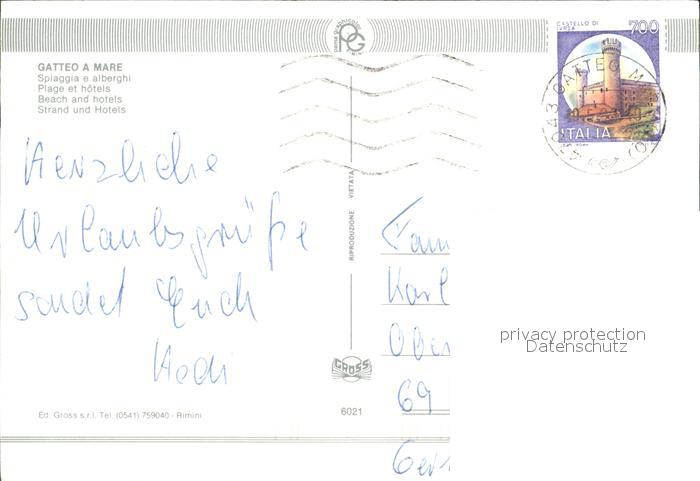 GATTEO A MARE
Spiaggia e alberghi
Plage et hôtels
Beach and hotels
Strand und Hotels
CASTELLO DI
IVREA
700
ITALIA
Herzliche
Urlaubsgrüße
sendet Euch
Hedi
RIPRODUZIONE VIETATA
Fam
Karl
Ober
69
Ger
privacy protection
Datenschutz
GROSS
Ed. Gross s.r.l. Tel. (0541) 759040 - Rimini
6021